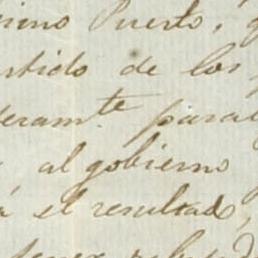 Puerto,
rtido de los
eramte. para
al gobierno
el resultado,
tener